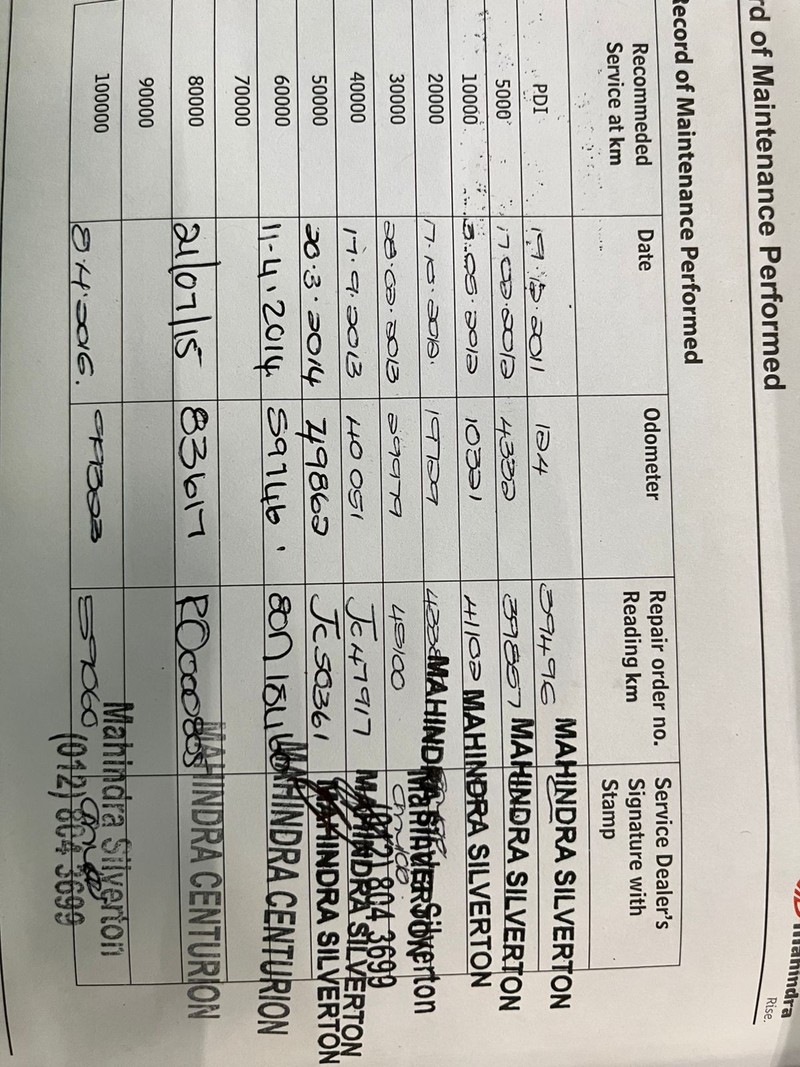 rd of Maintenance Performed
Mahindra
Rise.
Record of Maintenance Performed
Recommeded Service at km Date Odometer Repair order no. Reading km Service Dealer's Signature with Stamp
PDI 19.12.2011 124 39496 MAHINDRA SILVERTON
5000 17.02.2012 4322 39857 MAHINDRA SILVERTON
10000 3.05.2012 10321 41102 MAHINDRA SILVERTON
20000 17.10.2012. 19729 MAHINDRA SILVERTON
30000 28.02.2013 29979 45100 Mahindra Silverton (012) 804 3699
40000 17.9.2013 40051 JC47917 MAHINDRA SILVERTON
50000 20.3.2014 49862 JC50361 MAHINDRA SILVERTON
60000 11.4.2014 59746 MAHINDRA CENTURION
70000
80000 21/07/15 83617 MAHINDRA CENTURION
90000
100000 8.4.2016. 59060 Mahindra Silverton (012) 804 3699